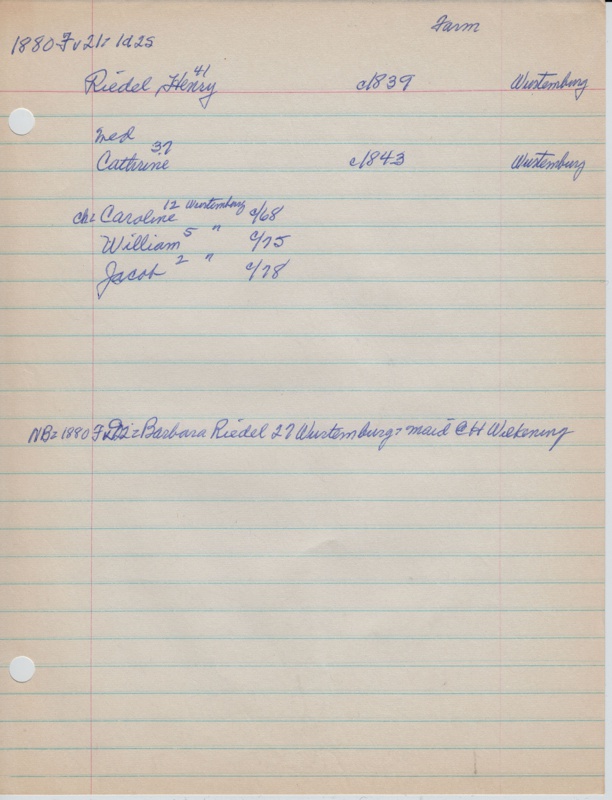 Farm
1880 Fv 21= 1d25
Riedel, Henry 41 c1839 Wurtemburg
med
Cathrine 37 c1843 Wurtemburg
ch= Caroline 12 Wurtemburg c/68
William 5 " c/75
Jacob 2 " c/78
NB= 1880 = Barbara Riedel 27 Wurtemburg = maid C H Wilkening